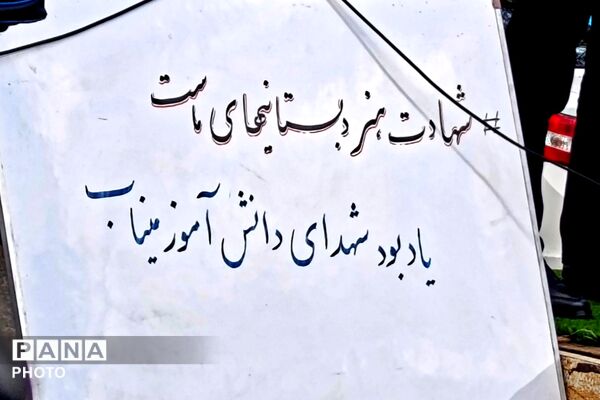 #شهادت هنر دبستانیهای ماست
یادبود شهدای دانش آموز میناب
PANA
PHOTO